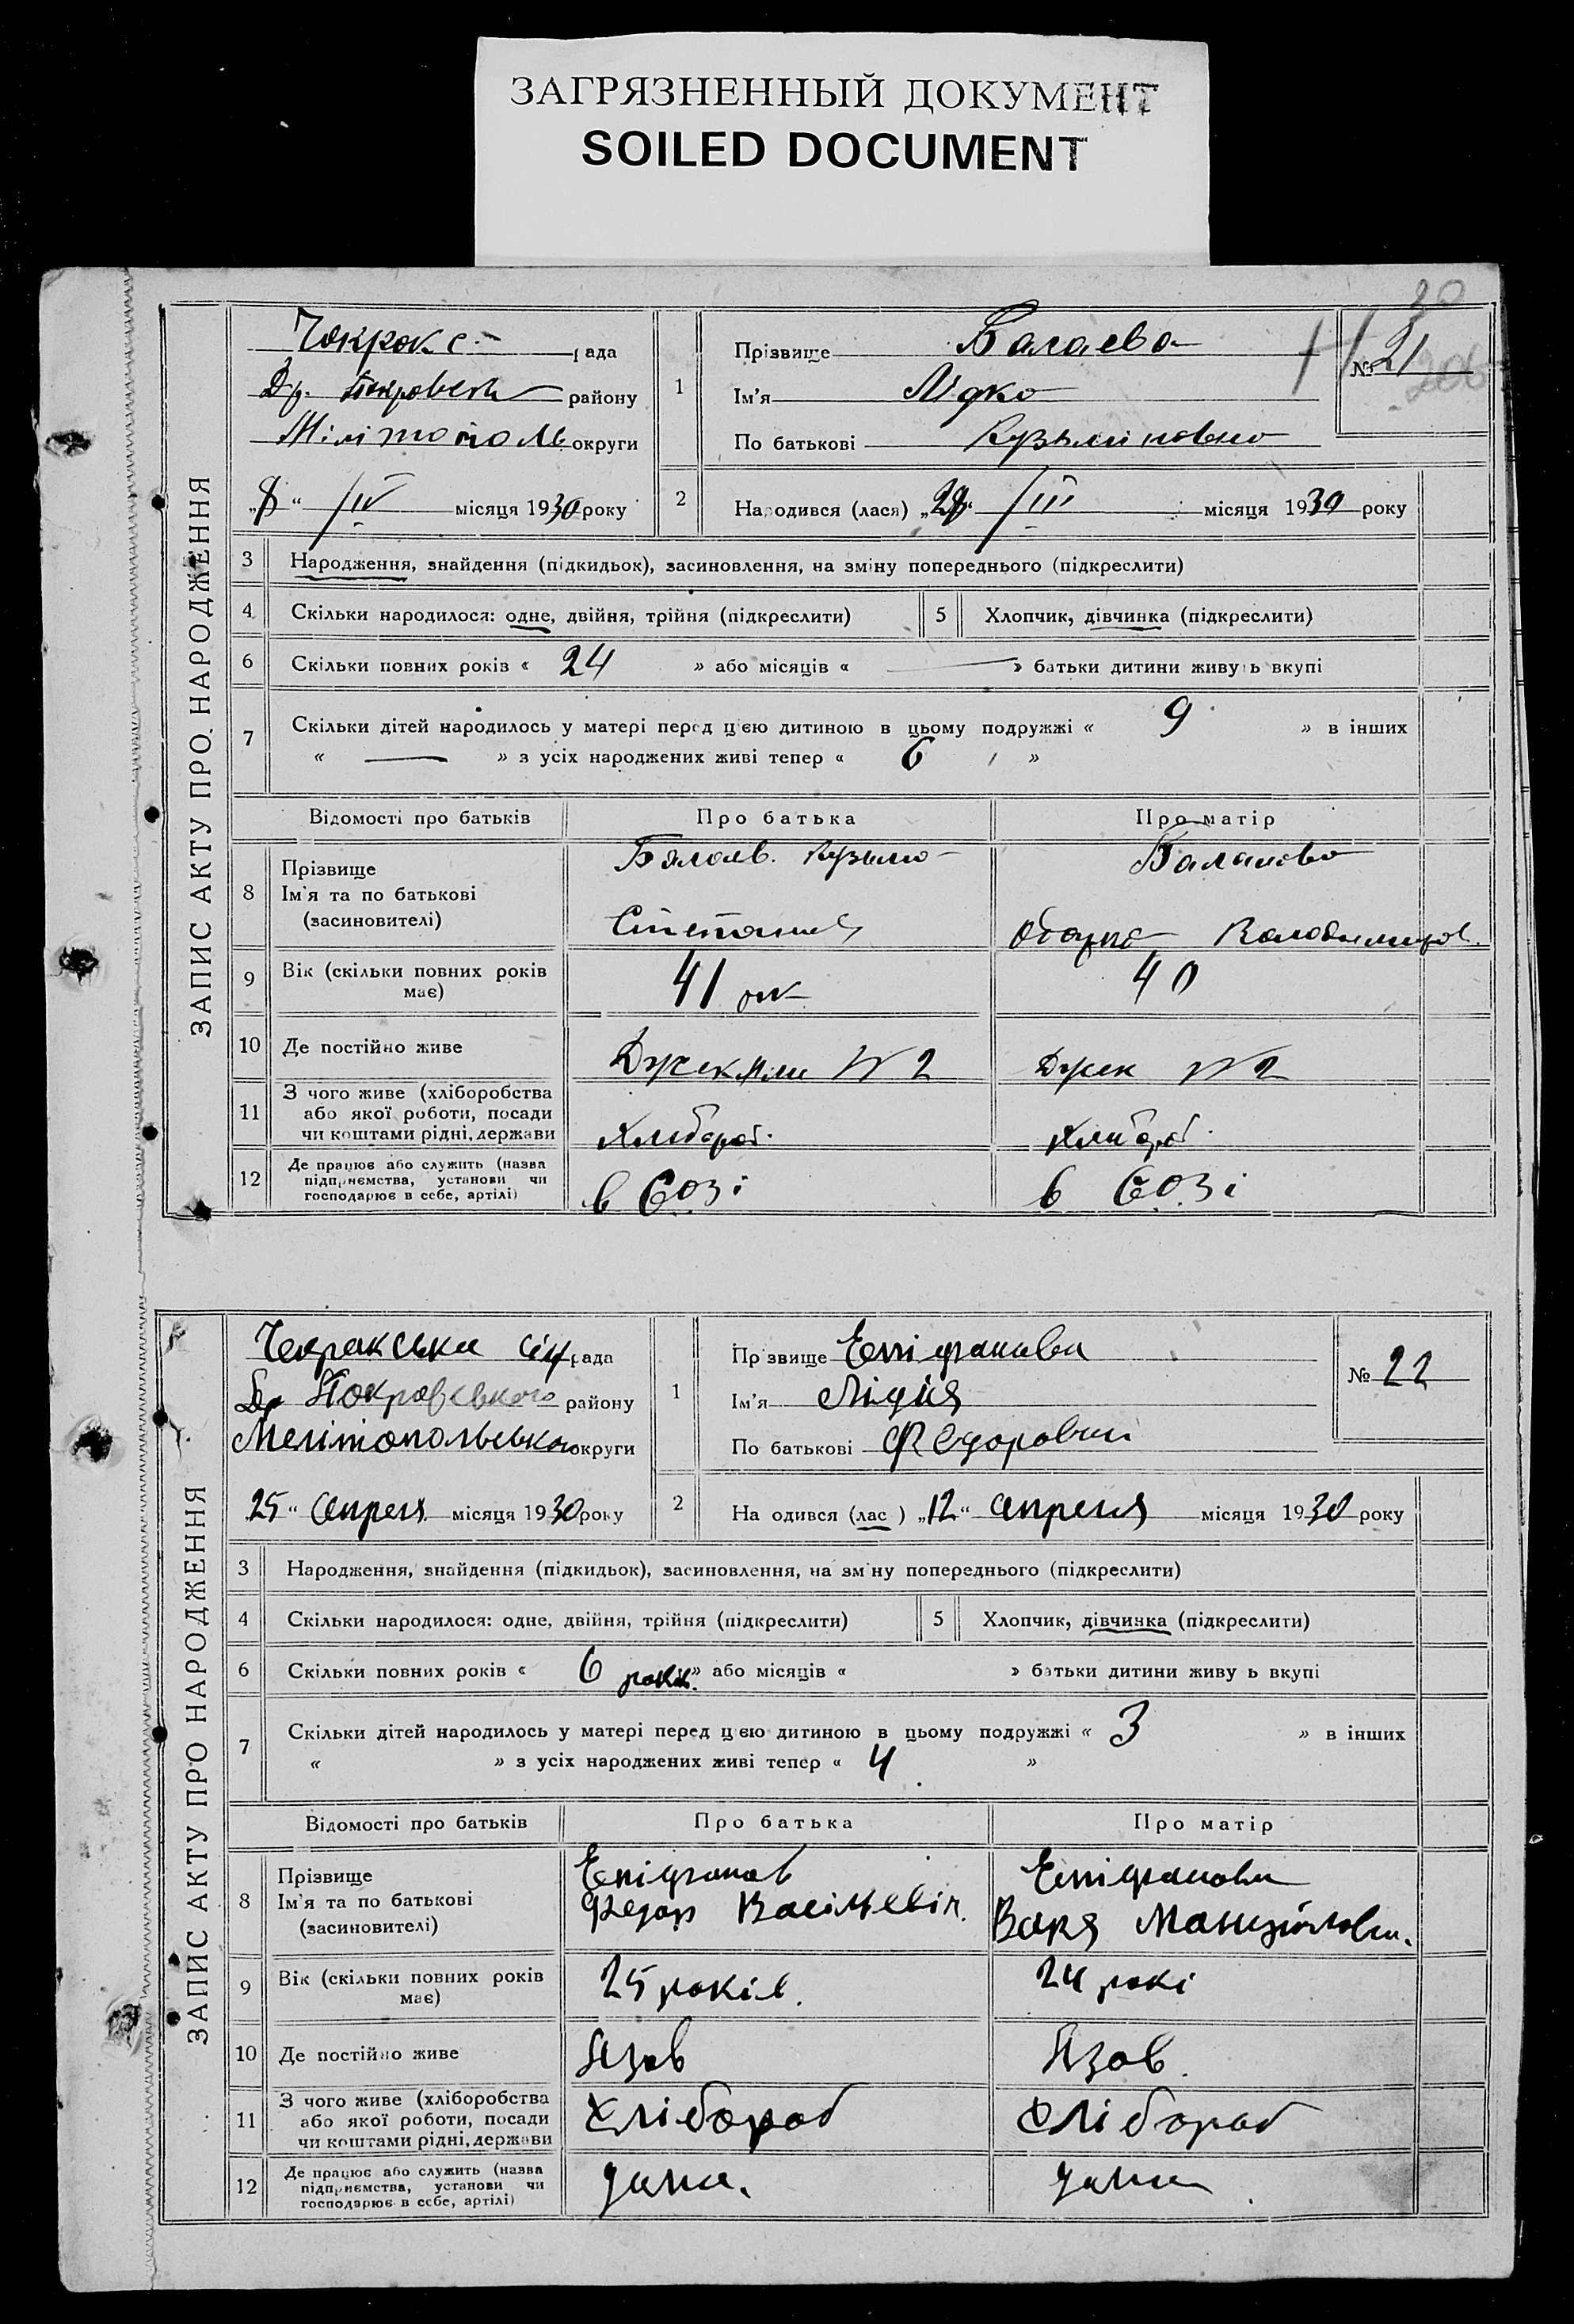 ЗАГРЯЗНЕННЫЙ ДОКУМЕНТ
SOILED DOCUMENT
30
ЗАПИС АКТУ ПРО НАРОДЖЕННЯ
рада
Др. району
округи
"8" /IV місяця 1930 року
1
Прізвище Балаева
Ім'я Лідко
По батькові
№ 21
2
Народився (лася) /III місяця 1930 року
3 Народження, знайдення (підкидьок), засиновлення, на зміну попереднього (підкреслити)
4 Скільки народилося: одне, двійня, трійня (підкреслити)
5 Хлопчик, дівчинка (підкреслити)
6 Скільки повних років « 24 » або місяців « — » батьки дитини живуть вкупі
7 Скільки дітей народилось у матері перед цією дитиною в цьому подружжі « 9 » в інших
« — » з усіх народжених живі тепер « 6 »
Відомості про батьків Про батька Про матір
8 Прізвище
Ім'я та по батькові
(засиновителі)
Балаев.
9 Вік (скільки повних років має) 41 40
10 Де постійно живе № 2 Джек № 2
11 З чого живе (хліборобства
або якої роботи, посади
чи коштами рідні, держави
Хлібороб. Хлібороб.
12 Де працює або служить (назва
підприємства, установи чи
господарює в себе, артілі)
в Созі в Созі
ЗАПИС АКТУ ПРО НАРОДЖЕННЯ
Чокракська сіл рада
Др Покровського району
Мелітопольського округи
25 " Апреля місяця 1930 року
1
Прізвище Епіфанова
Ім'я Лідия
По батькові Федоровни
№ 22
2
Народився (лас ) "12" апреля місяця 1930 року
3 Народження, знайдення (підкидьок), засиновлення, на зміну попереднього (підкреслити)
4 Скільки народилося: одне, двійня, трійня (підкреслити)
5 Хлопчик, дівчинка (підкреслити)
6 Скільки повних років « 6 років » або місяців « » батьки дитини живуть вкупі
7 Скільки дітей народилось у матері перед цією дитиною в цьому подружжі « 3 » в інших
« » з усіх народжених живі тепер « 4 »
Відомості про батьків Про батька Про матір
8 Прізвище
Ім'я та по батькові
(засиновителі)
Епіфанов
Федор Васільевіч.
Епіфанова
Варя
9 Вік (скільки повних років має) 25 років. 24 рокі
10 Де постійно живе Язов Язов.
11 З чого живе (хліборобства
або якої роботи, посади
чи коштами рідні, держави
Хлібороб Хлібороб
12 Де працює або служить (назва
підприємства, установи чи
господарює в себе, артілі)
дома. дома